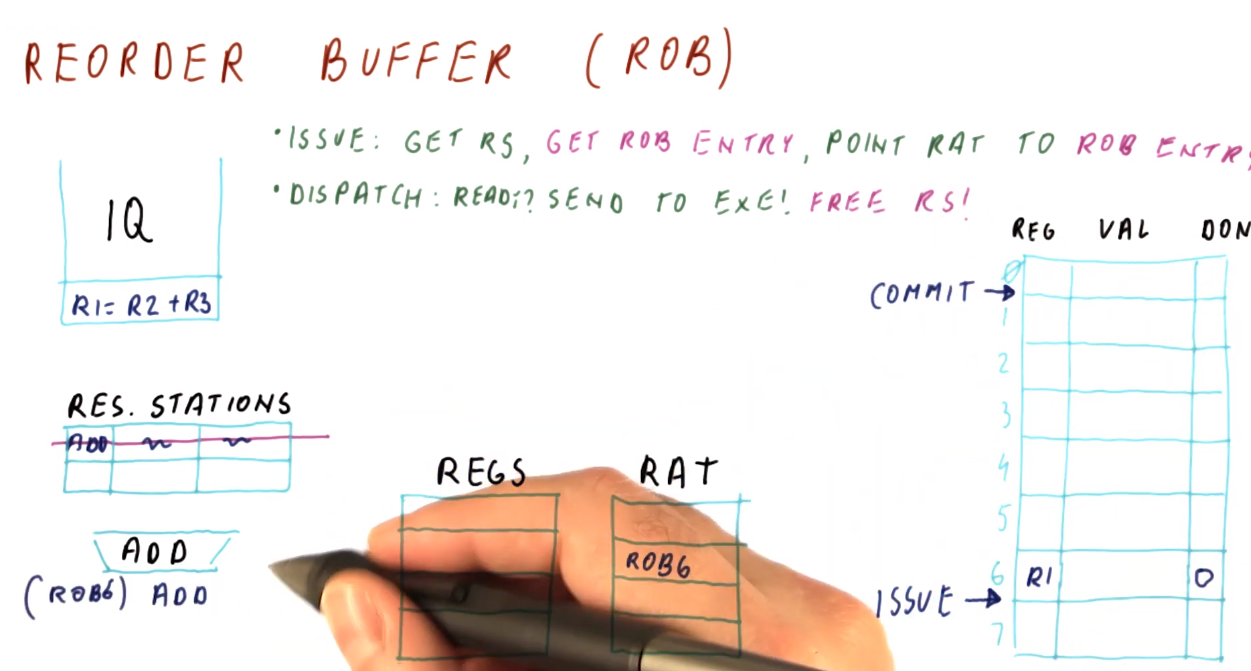 REORDER BUFFER (ROB)
• ISSUE: GET RS, GET ROB ENTRY, POINT RAT TO ROB ENTRY
• DISPATCH: READY? SEND TO EXE! FREE RS!
IQ
R1 = R2 + R3
RES. STATIONS
ADD ~ ~
ADD
(ROB6) ADD
REGS
RAT
ROB6
REG VAL DON
COMMIT →
0
1
2
3
4
5
6 R1 0
ISSUE →
7